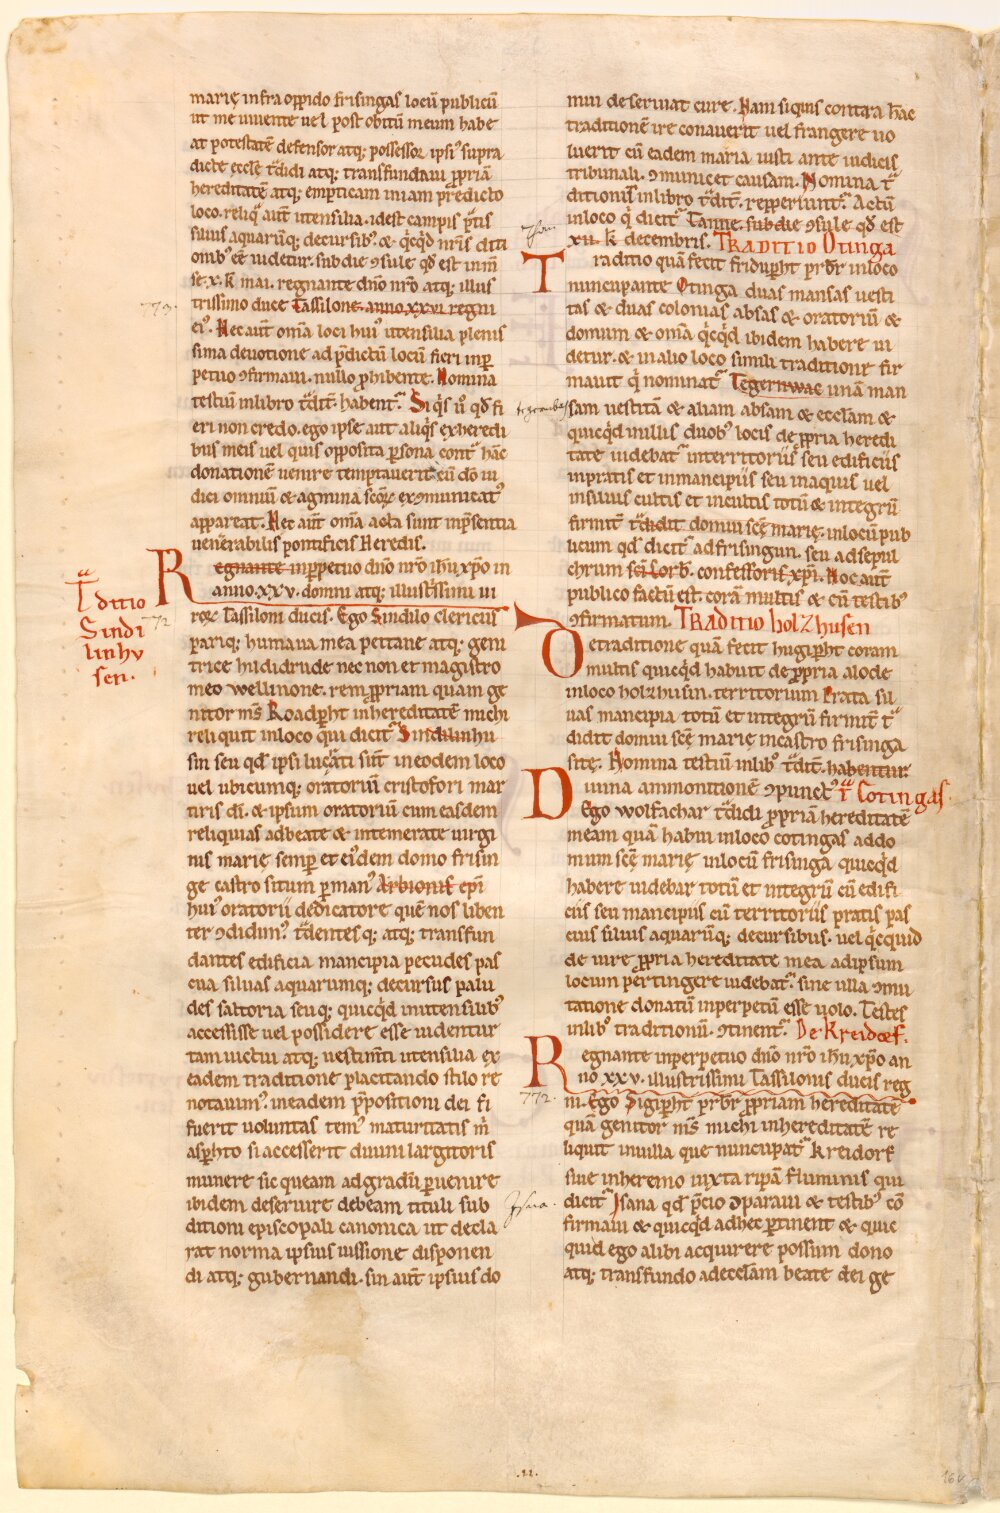 marię infra oppido frisingas locū publicū
ut me uiuente uel post obitū meum habe
at potestatē defensor atq; possessor ipsi᾽ supra
dicte eccłę tᷓdidi atq; transfundaui ꝓpriā
hereditatē atq; empticam in iam p̄redicto
loco. reliqᷓ aut̄ utensilia. id est campis pᷓtis
siluis aquarūq; decursib᾽. & q̇cq̇d nr̄is diti
onib᾽ eē uidetur. sub die ꝯsule qd̄ est in m̄
se. x. k̄. mai. regnante dn̄o nr̄o atq; illus
773.
trissimo duce Tassilone. anno xxvi regni
ei᾽. Hec aut̄ om̄a loci hui᾽ utensilia plenis
sima deuotione ad p̄dictū locū fieri inp̲
petuo ꝯfirmaui. nullo ꝓhibente. Nomina
testiū in libro tᷓdit̄. habent᷑. Siq̇s u̇ qd̄ fi
eri non credo. ego ipse aut aliq̇s exheredi
bus meis uel quis opposita p̲sona contᷓ hāc
donationē uenire temptauerit cū dō iu
dici omniū & agmina scōꝝ exꝯmunicat᾽
appareat. Hec aut̄ om̄a acta sunt inp̄sentia
uenerabilis pontificis Heredis.
Tᷓditio
Sindi
linhu
sen.
Regnante inp̲petuo dn̄o nr̄o ih̄u xp̄o in
anno. xxv. domni atq; illustrissimi ui
772
rox Tassiloni ducis. Ego Sindilo clericus
pariq; humaua mea petiane atq; geni
trice hildidrude nec non et magistro
meo wellinone. rem ꝓpriam quam ge
nitor m̄s Roadp̲ht in hereditatē michi
reliquit in loco q̇ui dicit᷑ Sindilinhu
sin seu qd̄ ipsi lucati sūt in eodem loco
uel ubicumq; oratoriū cristofori mar
tiris dī. & ipsum oratoriū cum easdem
reliquias adbeate & intemerate uirgi
nis marię semp̲ et ei᾽dem domo frisin
ge castro situm p̲man᾽ Arbionis ep̄i
hui᾽ oratorii dedicatore quē nos liben
ter ꝯdidim᾽. tᷓdentesq; atq; transfun
dantes edificia mancipia pecudes pas
cua siluas aquarumq; decursus palu
des saltoria seuq; quicq̇d inutensilib᾽
accessisse uel possidere esse uidentur
tam uictui atq; uestim̄ti utensilia ex
eadem traditione placitando stilo re
notauim᾽. in eadem ꝓpositioni dei fi
fuerit uoluntas tem᾽ maturitatis m̄
asp̲hto si accesserit diuini largitoris
munere sic queam adgradū p̲uenire
ibidem deseruire debeam tituli sub
ditioni episcopali canonica ut decla
rat norma ipsius iussione disponen
di atq; gubernandi. sin aut̄ ipsius do
mui deseruiat cure. Nam siquis contra hāc
traditionē ire conauerit uel frangere uo
luerit cū eadem maria iusti ante iudicis
tribunali. ꝯmunicet causam. Nomina tᷓ
ditionis in libro tᷓdit̄. repperiunt᷑. Actū
in loco q̇ dicit᷑ Tanne. sub die ꝯsule qd̄ est
xii. k̄. decembris. TRADITIO Otinga
Traditio quā fecit fridup̲ht pr̄br̄ in loco
nuncupante Otinga duas mansas uesti
tas & duas colonias absas & oratoriū &
domum & om̄a q̇cq̇d ibidem habere ui
detur. & in alio loco simili traditione fir
mauit q̇ nominat᷑ Tegernwac unā man
sam uestitā & aliam absam & eccłam &
quicq̇d in illis duob᾽ locis de ꝓpria heredi
tate uidebat᷑ in territoriis seu edificiis
inpratis et in mancipiis seu in aquis uel
in siluis cultis et incultis totū & integrū
firmit̄ tᷓdidit domui scē marię. in locū pub
licum qd̄ dicit᷑ adfrisingun. seu adsepul
chrum sc̄i Corb. confessoris xp̄i. Hoc aut̄
publico factū est. corā multis & cū testib᾽
ꝯfirmatum. TRADITIO holzhusen
De traditione quā fecit hugip̲ht coram
multis quicq̇d habuit de ꝓpria alode
in loco holzhusin. territorium Prata sil
uas mancipia totū et integrū firmit̄ tᷓ
didit domui scē marię incastro frisinga
sitę. Nomina testiū in lib᾽ tᷓdit̄. habentur
Diuina ammonitionē ꝯpunct᾽ Tᷓ Cotingas.
Ego wolfachar tᷓdidi ꝓpriā hereditatē
meam quā habui in loco cotingas addo
mum scē marię in locū frisinga quicq̇d
habere uidebar totū et integrū cū edifi
ciis seu mancipiis cū territoriis pratis pas
cuis siluis aquarūq; decursibus. uel q̇cquid
de iure ꝓpria hereditate mea adipsum
locum pertingere uidebat᷑. sine ulla ꝯmu
tatione donatū inperpetū esse uolo. Testes
in lib᾽ traditionū. ꝯtinent᷑. De Kreidorf.
Regnante inperpetuo dn̄o nr̄o ih̄u xp̄o an
no xxv. illustrissimi Tassilonis ducis reg
772.
ni. Ego Sigip̲ht pr̄br̄ ꝓpriam hereditatē
quā genitor m̄s michi in hereditatē re
liquit in uilla que nuncupat᷑ kreidorf
siue in heremo iuxta ripā fluminis qui
dicit᷑ Isana qd̄ p̄cio ꝯparaui & testib᾽ cō
Jsna.
firmaui & quicq̇d adhec p̲tinent & quic
quid ego alibi acquirere possum dono
atq; transfundo adecclam beate dei ge
.22.
16v